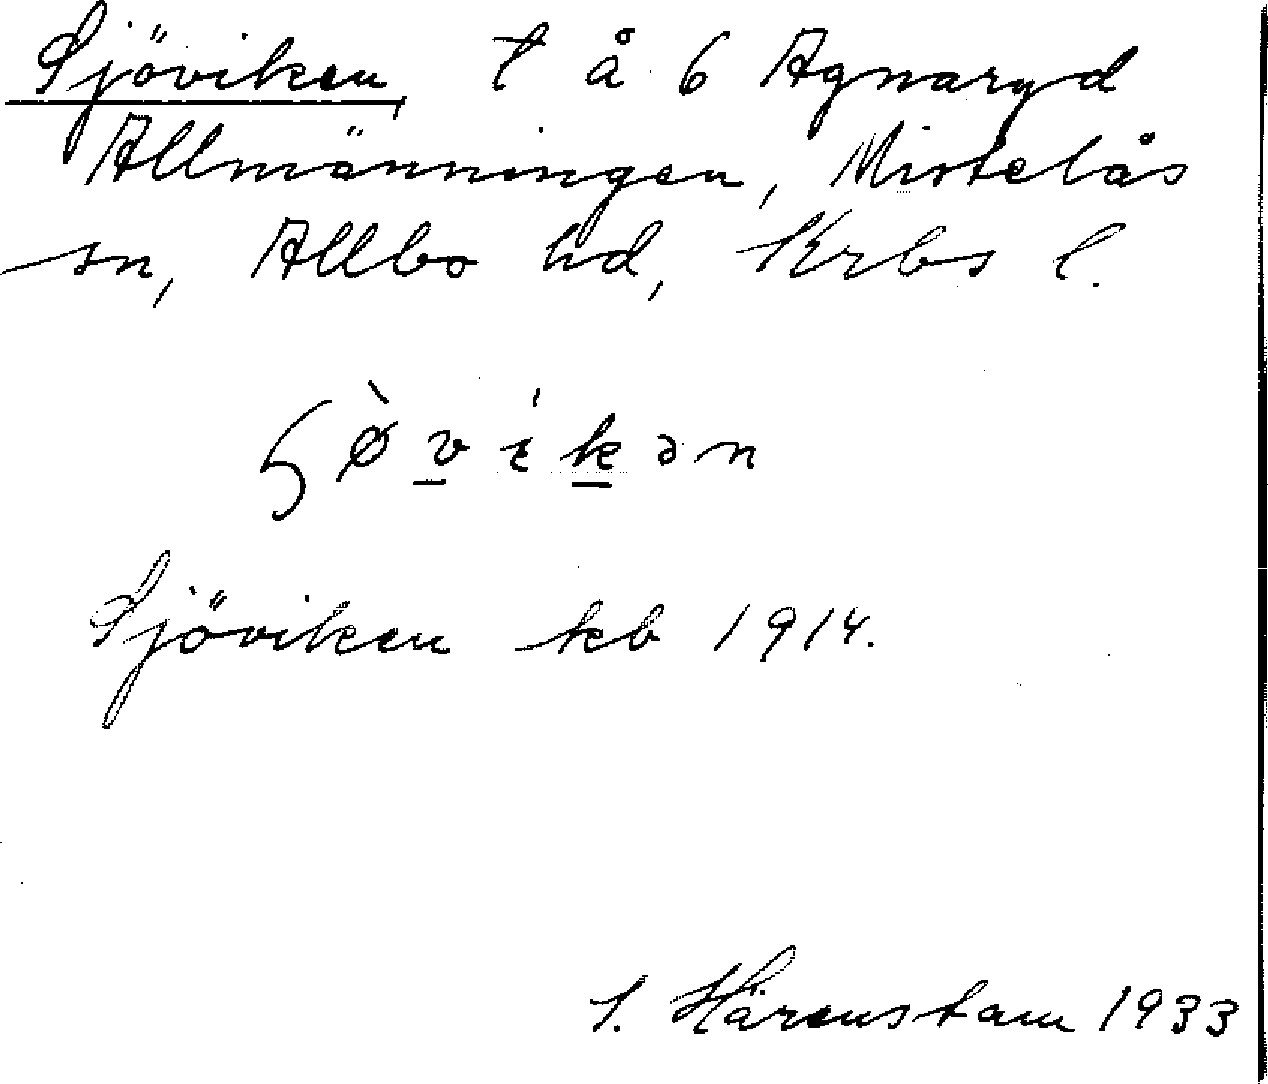 Sjöviken, t å 6 Agnaryd
Allmänningen, Mistelås
sn, Allbo hd, Krbs l.
ʂø̀vikən
Sjöviken kb 1914.
S. Härenstam 1933